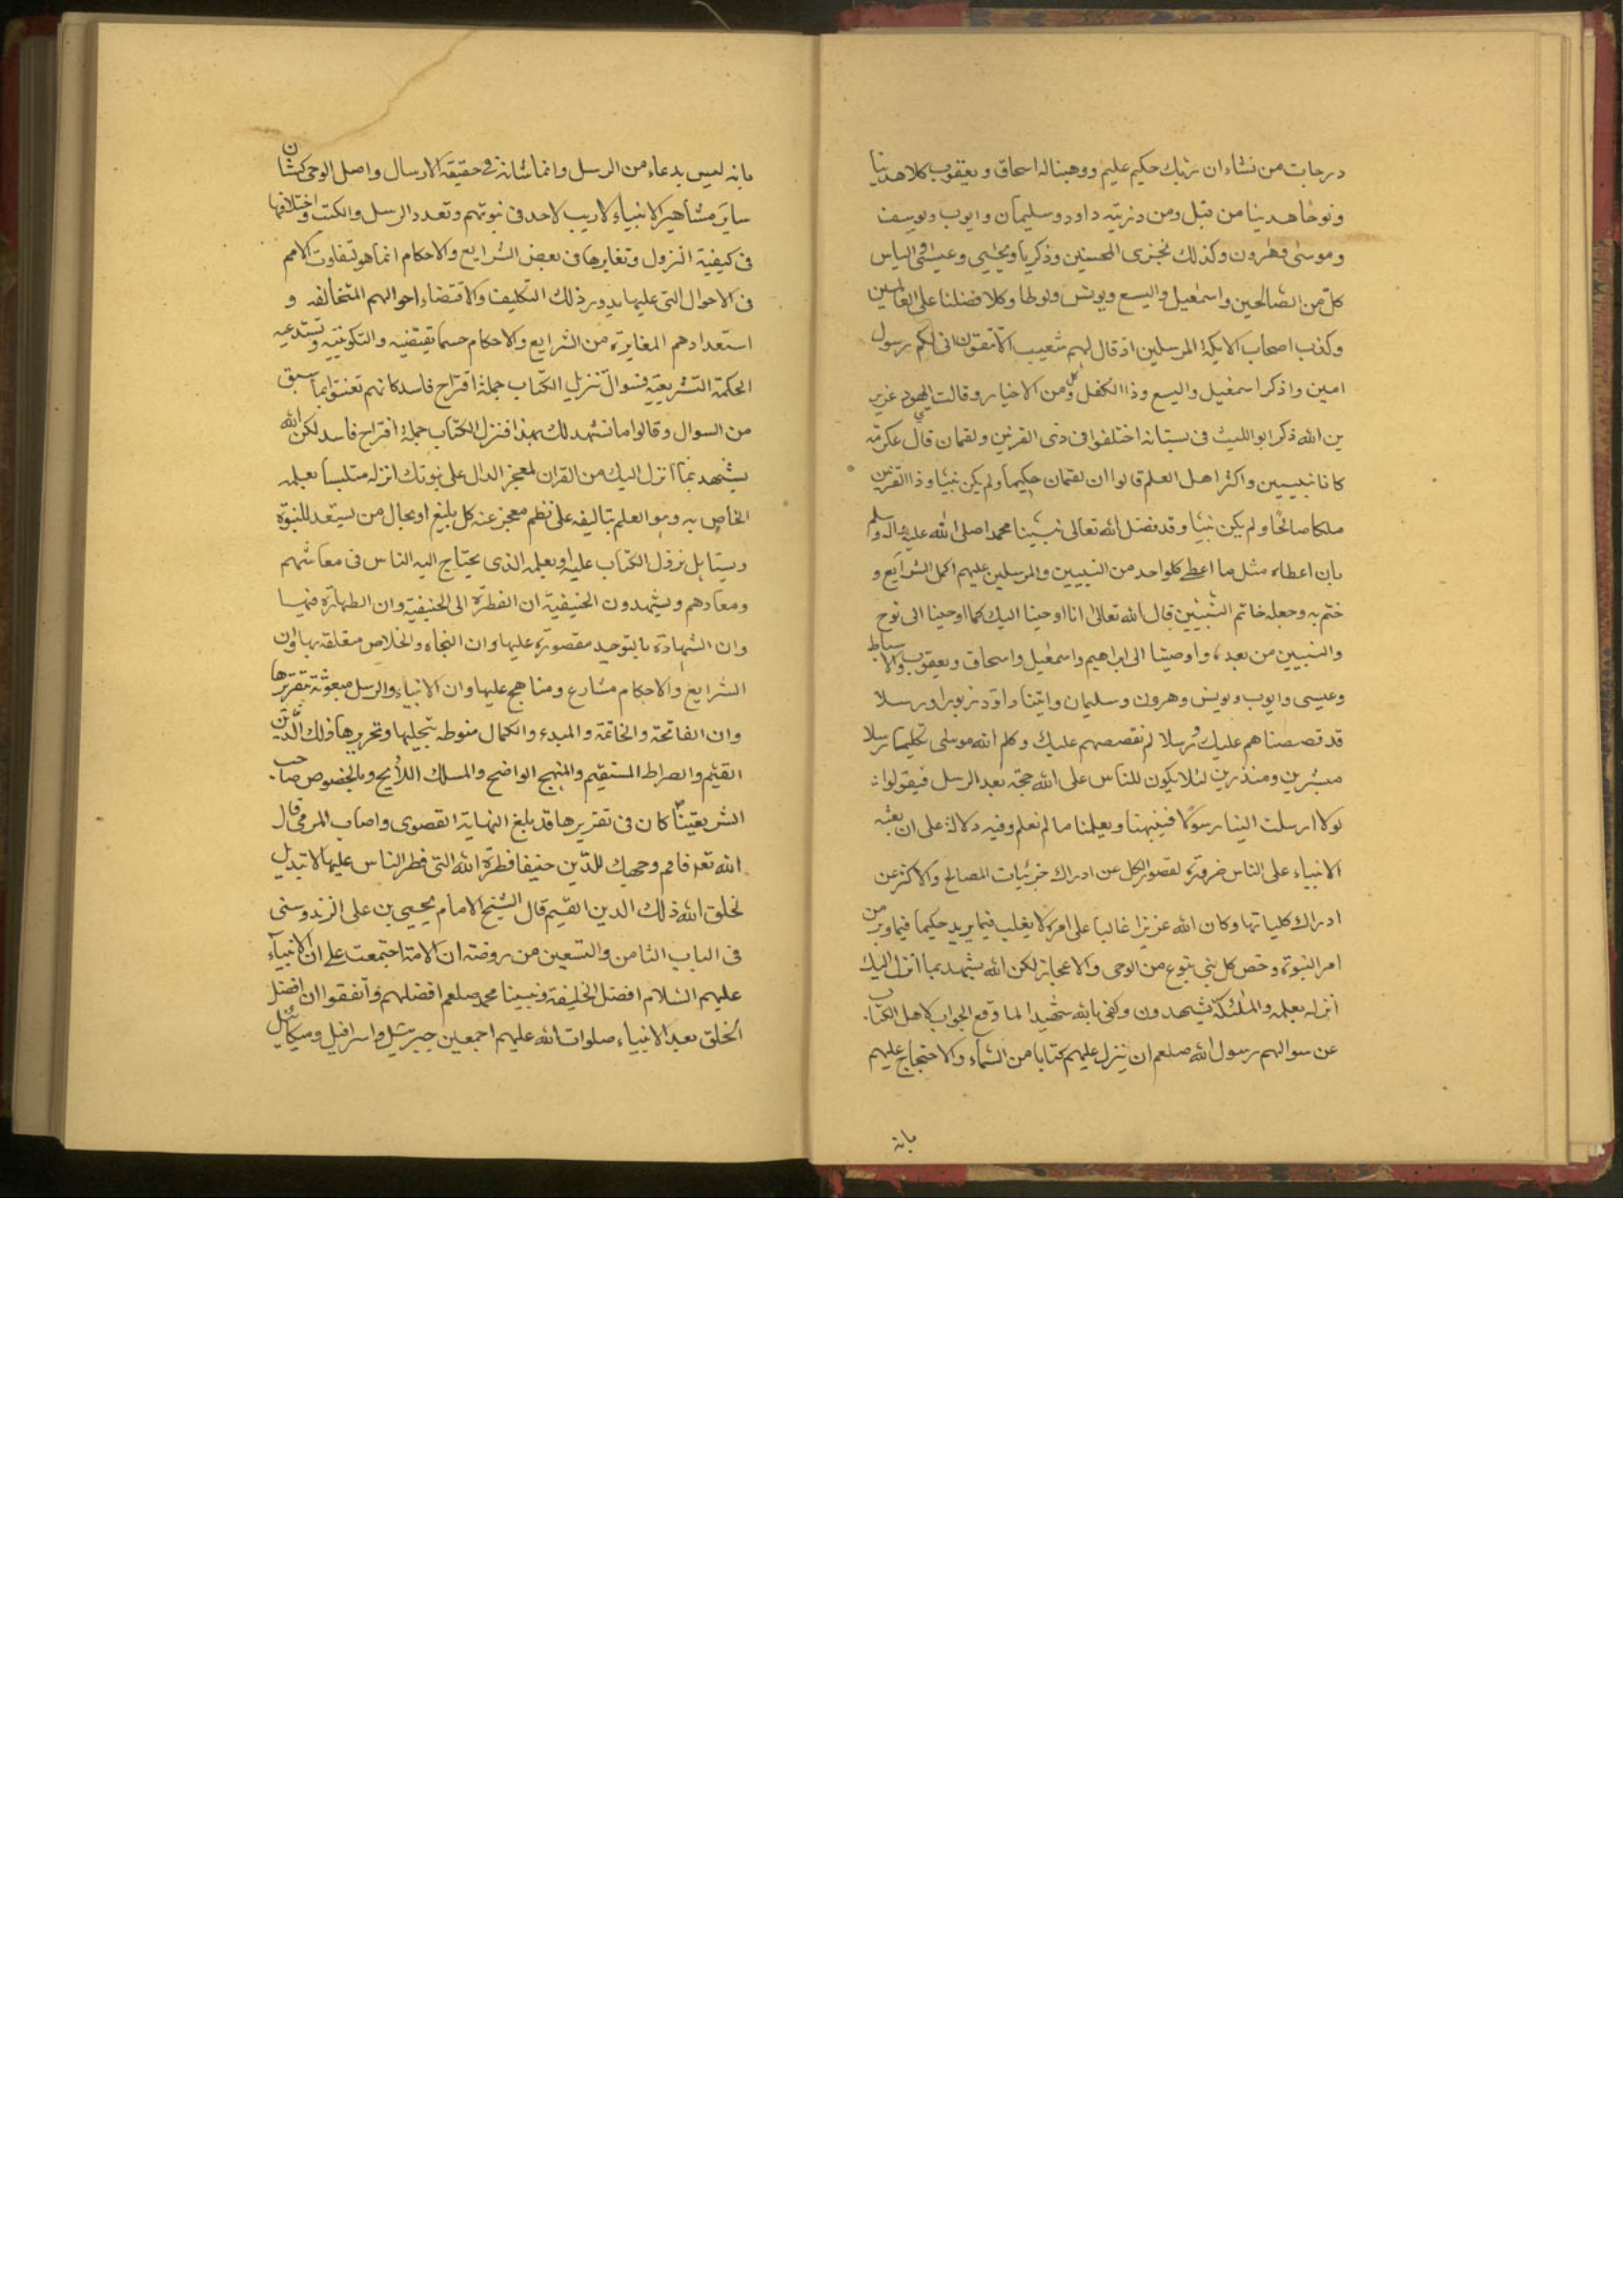 درجات من نشاء ان ربك حكيم عليم ووهبنا له اسحاق ويعقوب كلا هدينا
ونوحا هدينا من قبل ومن ذريته داود وسليمان وايوب ويوسف
وموسى وهرون وكذلك نجزى المحسنين وزكريا ويحيى وعيسى والياس
كل من الصالحين واسمعيل واليسع ويونس ولوطا وكلا فضلنا على العالمين
وكذب اصحاب الايكة المرسلين اذ قال لهم شعيب الا تتقون انى لكم رسول
امين واذكر اسمعيل واليسع وذا الكفل وكل من الاخيار وقالت اليهود عزير
بن الله ذكر ابو الليث فى بستانه اختلفوا فى ذى القرنين ولقمان قال عكرمة
كانا نبيين واكثر اهل العلم قالوا ان لقمان حكيما ولم يكن نبيا وذا القرنين
ملكا صالحا ولم يكن نبيا وقد فضل الله تعالى نبينا محمدا صلى الله عليه واله وسلم
بان اعطاه مثل ما اعطى كلواحد من النبيين والمرسلين عليهم اكمل الشرايع و
ختم به وجعله خاتم النبيين قال الله تعالى انا اوحينا اليك كما اوحينا الى نوح
والنبيين من بعده واوحينا الى ابراهيم واسمعيل واسحاق ويعقوب والاسباط
وعيسى وايوب ويونس وهرون وسليمان واتينا داود زبورا ورسلا
قد قصصناهم عليك ورسلا لم نقصصهم عليك وكلم الله موسى تكليما رسلا
مبشرين ومنذرين لئلا يكون للناس على الله حجة بعد الرسل فيقولوا
لولا ارسلت الينا رسولا فينبهنا ويعلمنا ما لم نعلم وفيه دلالة على ان بعثة
الانبياء على الناس ضرورة لقصور الكل عن ادراك جزئيات المصالح والاكثر عن
ادراك كلياتها وكان الله عزيزا غالبا على امره لا يغلب فيما يريد حكيما فيما دبر من
امر النبوة وخص كل نبى بنوع من الوحى والاعجاز لكن الله يشهد بما انزل اليك
انزله بعلمه والملئكة يشهدون وكفى بالله شهيدا لما وقع الجواب لاهل الكتاب
عن سوالهم رسول الله صلعم ان ينزل عليهم كتابا من السماء والاحتجاج عليهم
بانه
بانه ليس بدعاء من الرسل وانما شانه فى حقيقة الارسال واصل الوحى كشان
ساير مشاهير الانبياء لا ريب لاحد فى نبوتهم وتعدد الرسل والكتب واختلافها
فى كيفية النزول وتغايرها فى بعض الشرايع والاحكام انما هو لتفاوت الامم
فى الاحوال التى عليها يدور ذلك التكليف والاقتضاء احوالهم المتخالفه و
استعدادهم المغايرة من الشرايع والاحكام حسبما تقتضيه والتكوينيه وتستدعيه
الحكمة التشريعيه فسوال تنزيل الكتاب جملة اقتراح فاسد كانهم تعنتوا بما سبق
من السوال وقالوا ما نشهد لك بهذا فنزل الكتاب جملة اقتراح فاسد لكن الله
يشهد بما انزل اليك من القران لمعجز الدال على نبوتك انزله متلبسا بعلمه
الخاص به وهو العلم بتاليفه على نظم معجز عنه كل بليغ او بحال من يستعد للنبوة
ويستاهل نزول الكتاب عليه او بعلمه الذى يحتاج اليه الناس فى معاشهم
ومعادهم ويشهدون الحنيفية ان الفطرة الى الحنيفية وان الطهارة فيها
وان الشهادة بالتوحيد مقصورة عليها وان النجاه والخلاص متعلقه بها وان
الشرايع والاحكام مشارع ومناهج عليها وان الانبياء والرسل مبعوثة بتقريرها
وان الفاتحة والخاتمة والمبدء والكمال منوطه بتجليها وتحريرها ذلك الدين
القيم والصراط المستقيم والمنهج الواضح والمسلك اللايح وبالخصوص صاحب
الشريعتنا كان فى تقريرها قد بلغ النهاية القصوى واصاب المرمى قال
الله تعم فاقم وجهك للدين حنيفا فطرة الله التى فطر الناس عليها لا تبديل
لخلق الله ذلك الدين القيم قال الشيخ الامام يحيى بن على الزندوستى
فى الباب الثامن والتسعين من روضته ان الامة اجتمعت على ان الانبياء
عليهم السلام افضل الخليفة ونبينا محمد صلعم افضلهم واتفقوا ان افضل
الخلق بعد الانبياء صلوات الله عليهم اجمعين جبرئيل واسرافيل وميكائيل